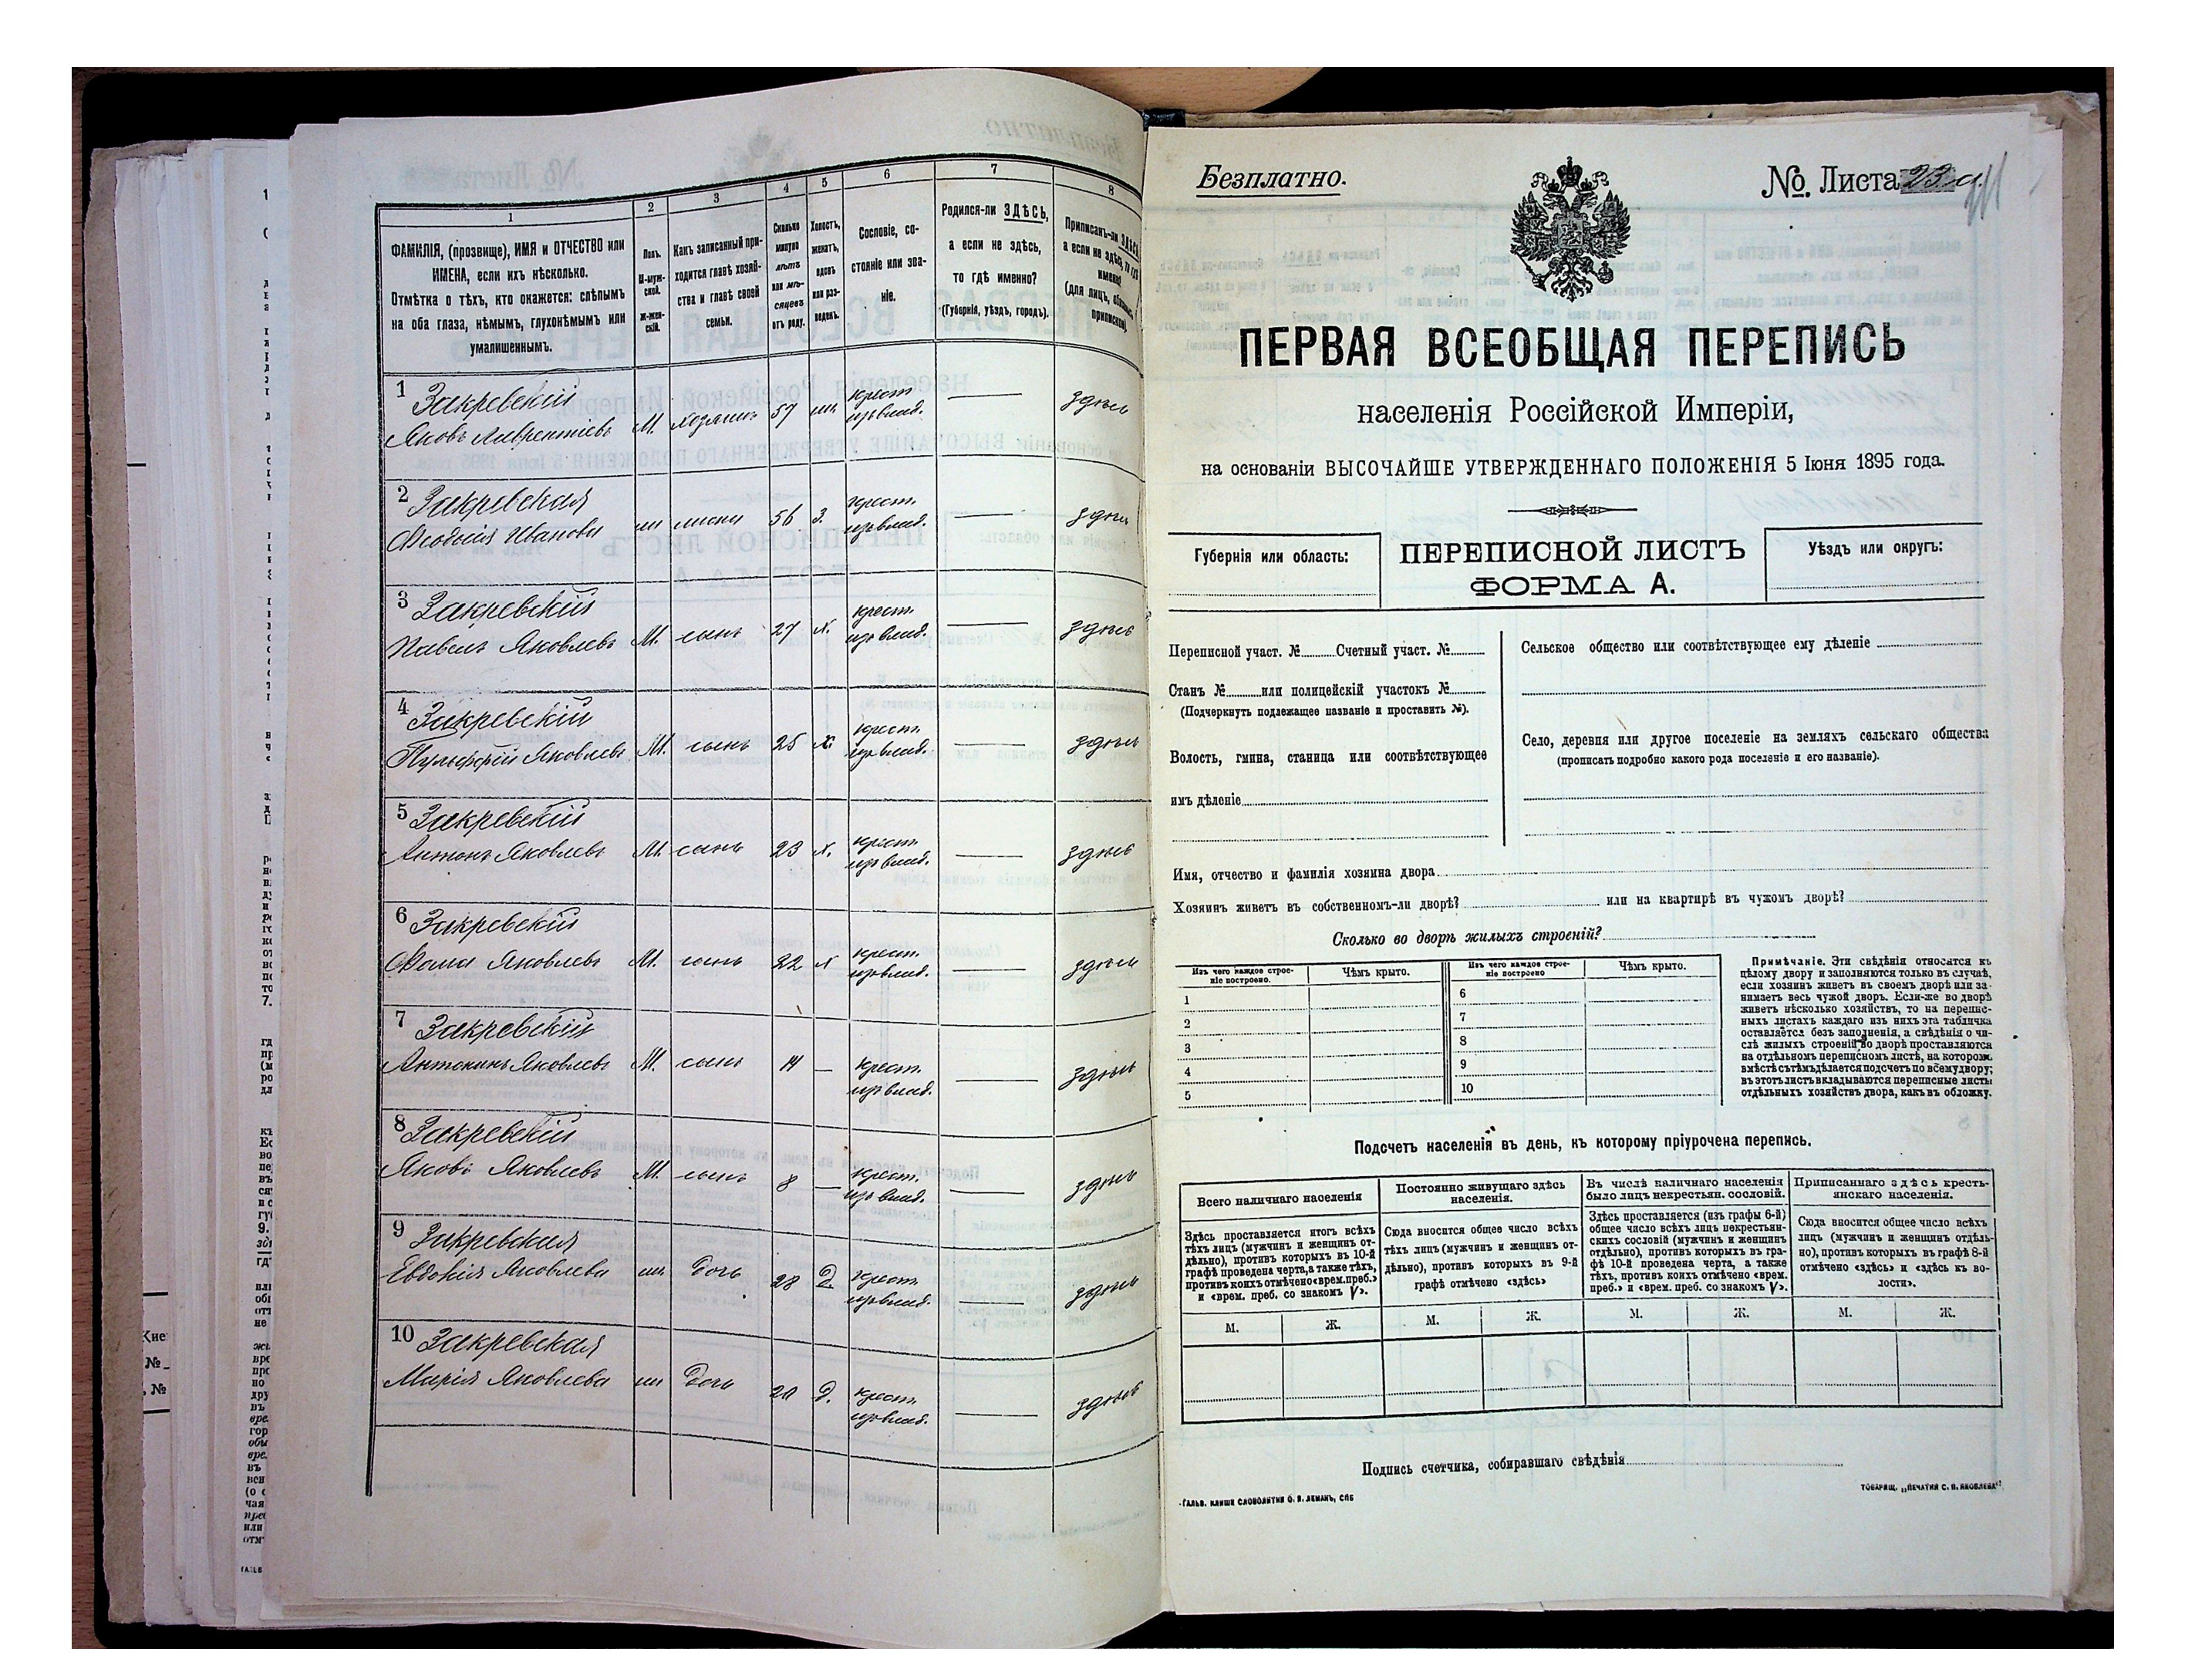 1
2
3
4
5
6
7
8
ФАМИЛІЯ, (прозвище), ИМЯ и ОТЧЕСТВО или
ИМЕНА, если ихъ нѣсколько.
Отмѣтка о тѣхъ, кто окажется: слѣпымъ
на оба глаза, нѣмымъ, глухонѣмымъ или
умалишеннымъ.
Полъ.
М-муж-
ской.
Ж-жен-
скій.
Какъ записанный при-
ходится главѣ хозяй-
ства и главѣ своей
семьи.
Сколько
минуло
лѣтъ
или мѣ-
сяцевъ
отъ роду.
Холостъ,
женатъ,
вдовъ
или раз-
веденъ.
Сословіе, со-
стояніе или зва-
ніе.
Родился-ли ЗДѢСЬ,
а если не здѣсь,
то гдѣ именно?
(Губернія, уѣздъ, городъ).
Приписанъ-ли ЗДѢСЬ,
а если не здѣсь, то гдѣ
именно?
(для лицъ, обязанныхъ
припиской).
1 Закревскій
Яковъ Лаврентіевъ М. хозяинъ 57 крест. изъ влад. — здѣсь
2 Закревская
Феодосія Иванова ж жена 56 З. крест. изъ влад. — здѣсь
3 Закревскій
Павелъ Яковлевъ М. сынъ 27 х. крест. изъ влад. — здѣсь
4 Закревскій
Яковлевъ М. сынъ 25 х. крест. изъ влад. — здѣсь
5 Закревскій
Антонъ Яковлевъ М. сынъ 23 х. крест. изъ влад. — здѣсь
6 Закревскій
Фома Яковлевъ М. сынъ 22 х крест. изъ влад. — здѣсь
7 Закревскій
Антонинъ Яковлевъ М. сынъ 14 — крест. изъ влад. — здѣсь
8 Закревскій
Яковъ Яковлевъ М. сынъ 8 — крест. изъ влад. — здѣсь
9 Закревская
Евдокія Яковлева ж дочь 28 Д. крест. изъ влад. — здѣсь
10 Закревская
Марія Яковлева ж дочь 20 Д. крест. изъ влад. — здѣсь
Безплатно.
№ Листа 23
ПЕРВАЯ ВСЕОБЩАЯ ПЕРЕПИСЬ
населенія Россійской Имперіи,
на основаніи ВЫСОЧАЙШЕ УТВЕРЖДЕННАГО ПОЛОЖЕНІЯ 5 Іюня 1895 года.
Губернія или область:
ПЕРЕПИСНОЙ ЛИСТЪ
ФОРМА А.
Уѣздъ или округъ:
Переписной участ. № Счетный участ. №
Станъ № или полицейскій участокъ №
(Подчеркнуть подлежащее названіе и проставить №).
Волость, гмина, станица или соотвѣтствующее
имъ дѣленіе
Сельское общество или соотвѣтствующее ему дѣленіе
Село, деревня или другое поселеніе на земляхъ сельскаго общества
(прописать подробно какого рода поселеніе и его названіе).
Имя, отчество и фамилія хозяина двора
Хозяинъ живетъ въ собственномъ-ли дворѣ? или на квартирѣ въ чужомъ дворѣ?
Сколько во дворѣ жилыхъ строеній?
Изъ чего каждое строе-
ніе построено.
Чѣмъ крыто.
Изъ чего каждое строе-
ніе построено
Чѣмъ крыто.
1
2
3
4
5
6
7
8
9
10
Примѣчаніе. Эти свѣдѣнія относятся къ
цѣлому двору и заполняются только въ случаѣ,
если хозяинъ живетъ въ своемъ дворѣ или за-
нимаетъ весь чужой дворъ. Если-же во дворѣ
живетъ нѣсколько хозяйствъ, то на перепис-
ныхъ листахъ каждаго изъ нихъ эта табличка
оставляется безъ заполненія, а свѣдѣнія о чи-
слѣ жилыхъ строеній во дворѣ проставляются
на отдѣльномъ переписномъ листѣ, на которомъ
вмѣстѣ съ тѣмъ дѣлается подсчетъ по всему двору;
въ этотъ листъ вкладываются переписные листы
отдѣльныхъ хозяйствъ двора, какъ въ обложку.
Подсчетъ населенія въ день, къ которому пріурочена перепись.
Всего наличнаго населенія
Постоянно живущаго здѣсь
населенія.
Въ числѣ наличнаго населенія
было лицъ некрестьян. сословій.
Приписаннаго здѣсь кресть-
янскаго населенія.
Здѣсь проставляется итогъ всѣхъ
тѣхъ лицъ (мужчинъ и женщинъ от-
дѣльно), противъ которыхъ въ 10-й
графѣ проведена черта, а также тѣхъ,
противъ коихъ отмѣчено «врем. преб.»
и «врем. преб. со знакомъ V».
Сюда вносится общее число всѣхъ
тѣхъ лицъ (мужчинъ и женщинъ от-
дѣльно), противъ которыхъ въ 9-й
графѣ отмѣчено «здѣсь»
Здѣсь проставляется (изъ графы 6-й)
общее число всѣхъ лицъ некрестьян-
скихъ сословій (мужчинъ и женщинъ
отдѣльно), противъ которыхъ въ гра-
фѣ 10-й проведена черта, а также
тѣхъ, противъ коихъ отмѣчено «врем.
преб.» и «врем. преб. со знакомъ V».
Сюда вносится общее число всѣхъ
лицъ (мужчинъ и женщинъ отдѣль-
но), противъ которыхъ въ графѣ 8-й
отмѣчено «здѣсь» и «здѣсь къ во-
лости».
М. Ж. М. Ж. М. Ж. М. Ж.
Подпись счетчика, собиравшаго свѣдѣнія
ГАЛЬВ. КЛИШЕ СЛОВОЛИТНИ О. И. ЛЕМАНЪ, СПБ
ТОВАРИЩ. „ПЕЧАТНЯ С. П. ЯКОВЛЕВА“